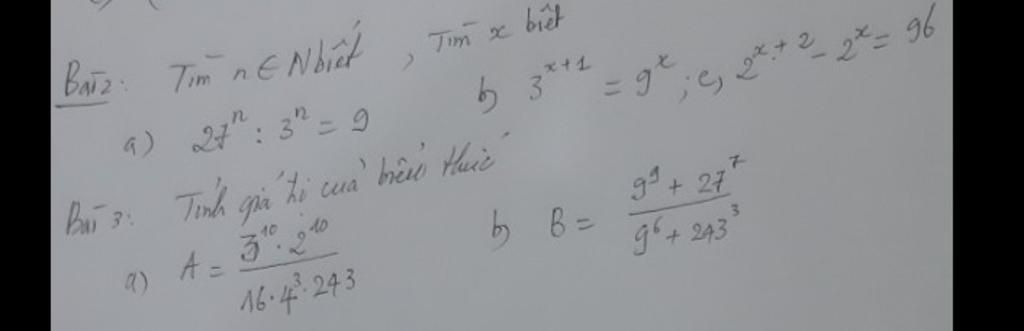 Bài 2: Tìm n ∈ N biết, Tìm x biết
a) 27ⁿ : 3ⁿ = 9 b) 3ˣ⁺¹ = 9ˣ; c, 2ˣ⁺² - 2ˣ = 96
Bài 3: Tính giá trị của biểu thức
a) A = (3¹⁰ · 2¹⁰) / (16 · 4³ · 243) b) B = (9⁹ + 27⁷) / (9⁶ + 243³)